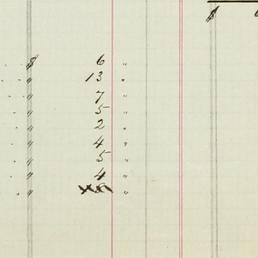 $
$ 6 "
" 13 "
" 7 "
" 5 "
" 2 "
" 4 "
" 5 "
" 4 "
" "